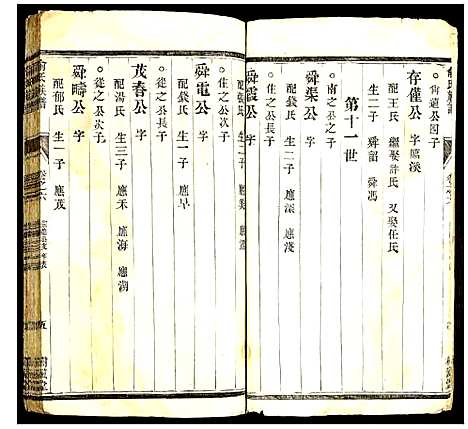 ○尚道公四子
存僅公 字 溪
配王氏 繼娶許氏 又娶任氏
生二子 舜韶 舜馮
第十一世
○南之公之子
舜渠公 字
配錢氏 生二子 應溪 應淺
○住之公長子
舜霞公 字
配張氏 生二子 應
○住之公次子
舜電公 字
配錢氏 生一子 應旱
○從之公長子
茂春公 字
配湯氏 生三子 應禾 應海 應湖
○從之公次子
舜疇公 字
配郁氏 生一子 應茂
氏族譜
卷之六
五